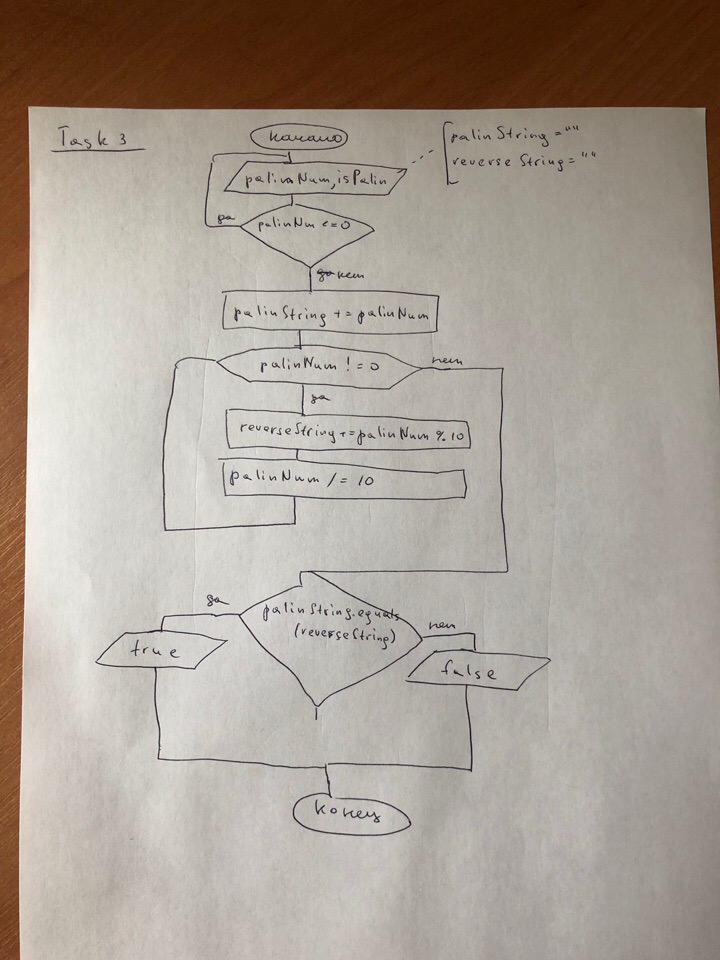 Task 3
начало
palinNum, isPalin
palinString = ""
reverseString = ""
palinNum <= 0
да
нет
palinString += palinNum
palinNum != 0
нет
да
reverseString += palinNum % 10
palinNum /= 10
да
palinString.equals
(reverseString)
нет
true
false
конец